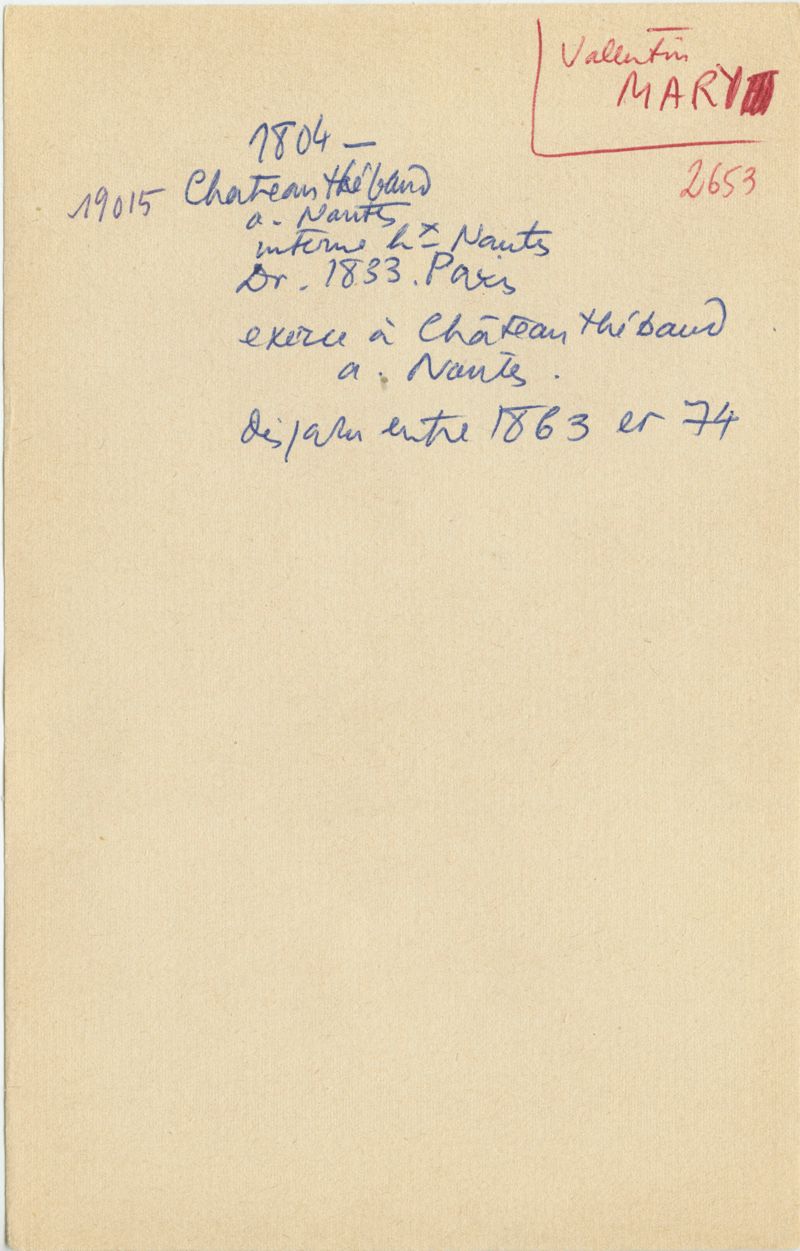 Valentin
MARY
2653
1804 —
19015 Chateauthébaud
a. Nantes
interne hx Nantes
Dr. 1833. Paris
exerce à Châteauthébaud
a. Nantes.
disparu entre 1863 et 74